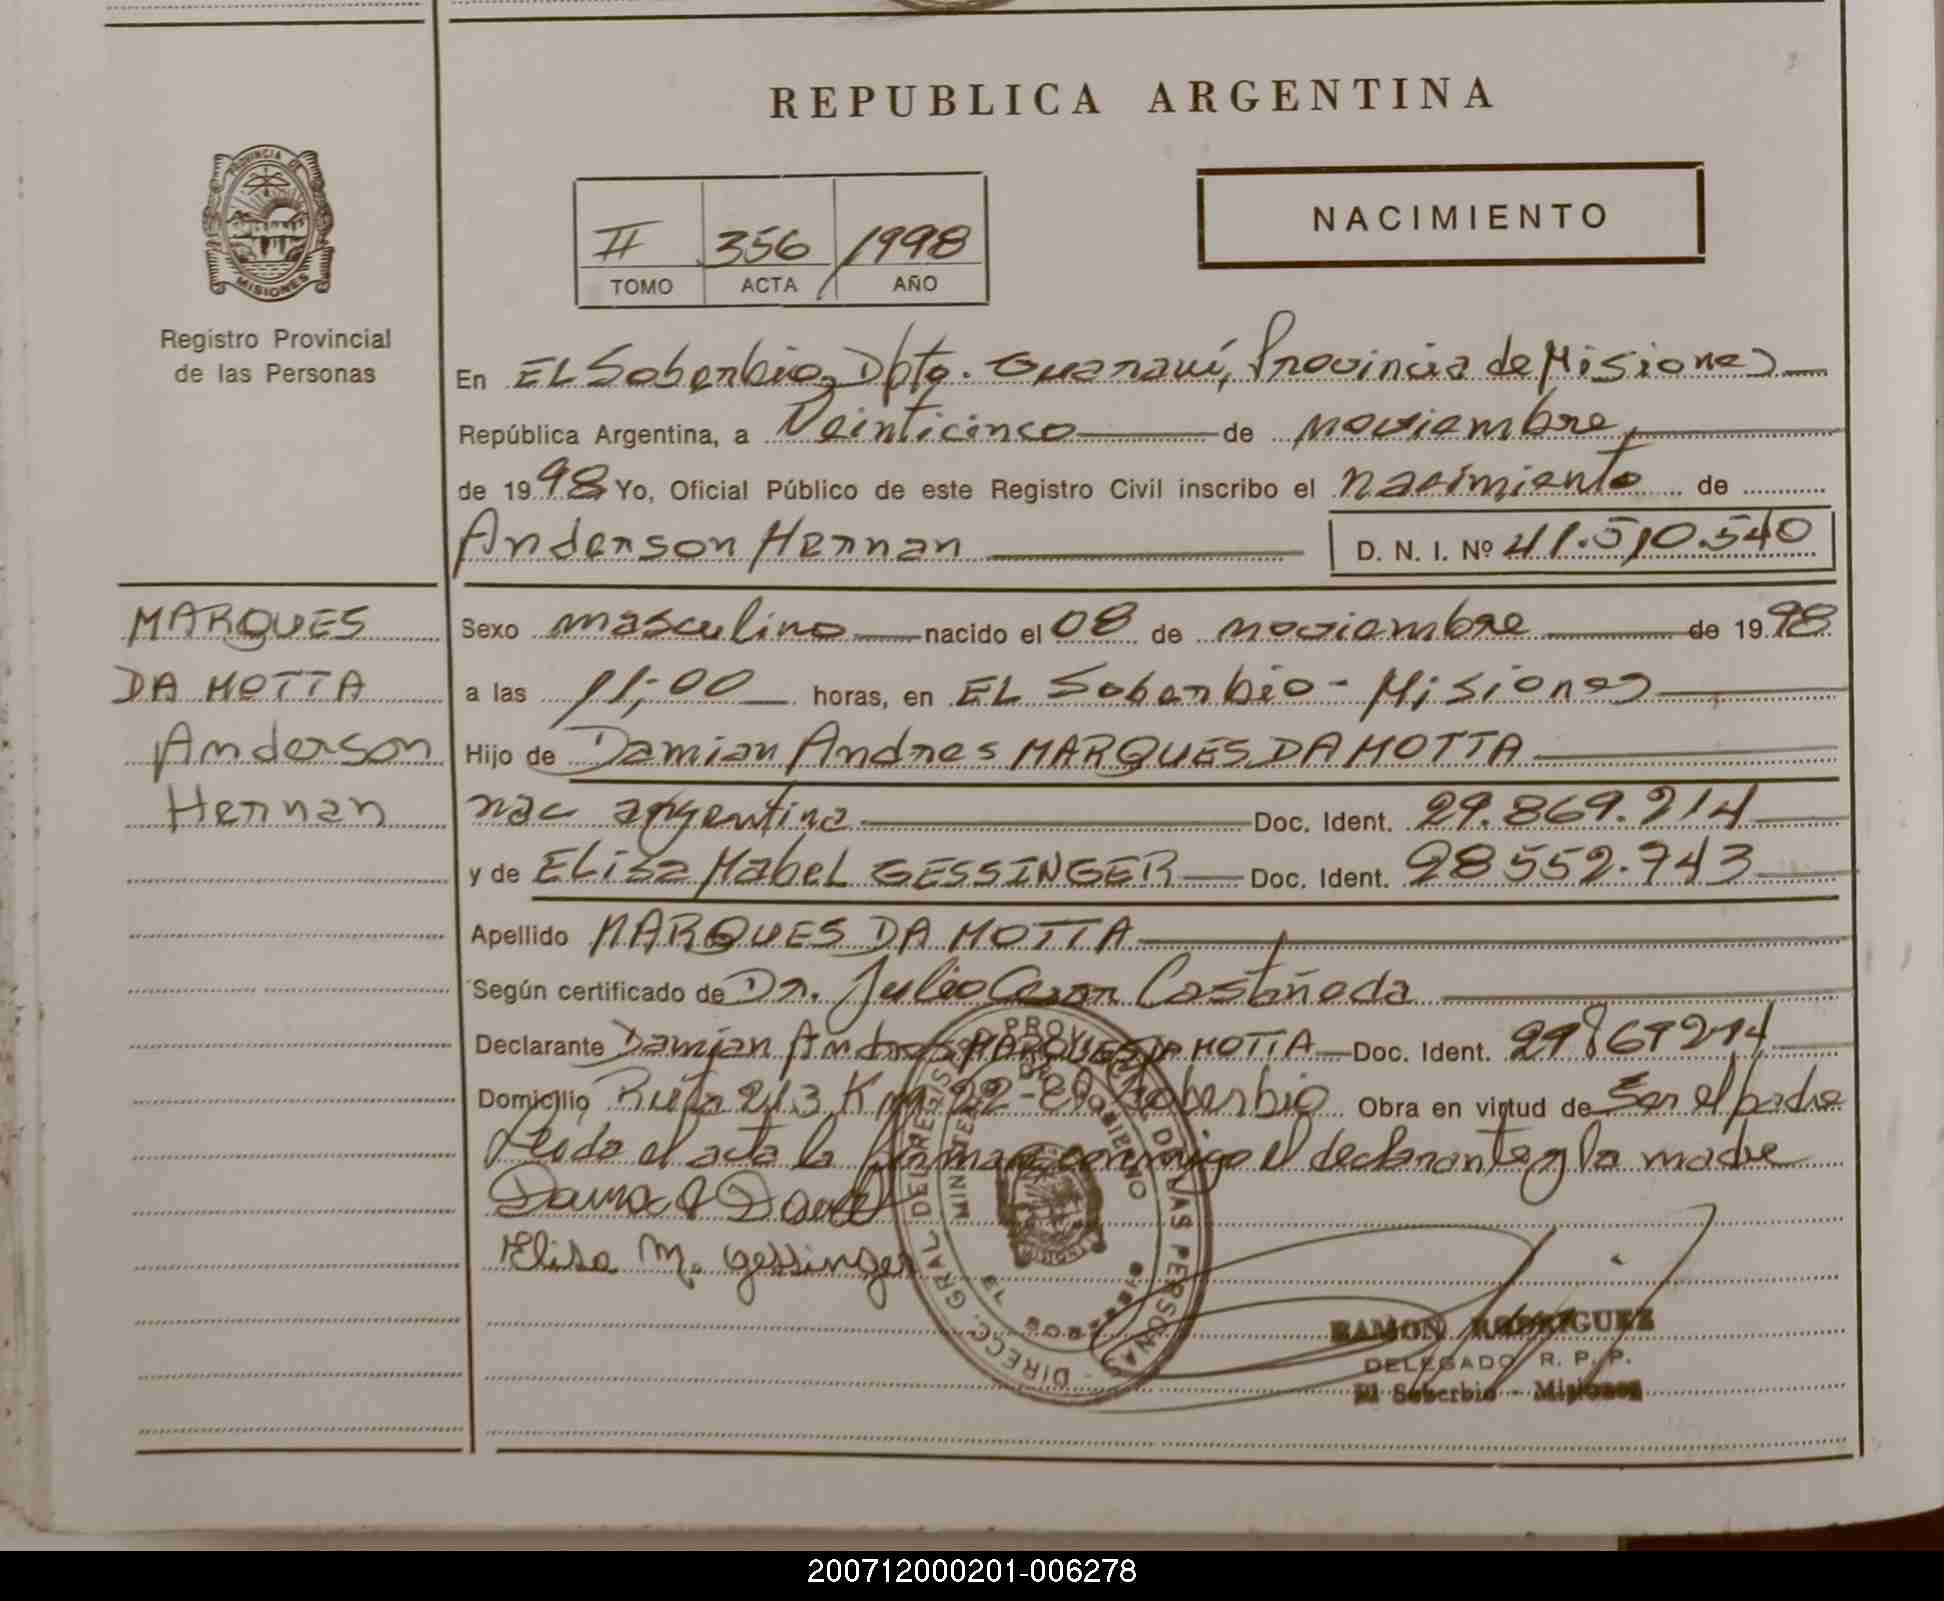 REPUBLICA ARGENTINA
PROVINCIA DE
MISIONES
Registro Provincial
de las Personas
II 356 1998
TOMO ACTA AÑO
NACIMIENTO
En EL Soberbio, Dpto. Guaraní, Provincia de Misiones
República Argentina, a Veinticinco de noviembre
de 1998 Yo, Oficial Público de este Registro Civil inscribo el nacimiento de
Anderson Hernan D. N. I. Nº 41.510.540
MARQUES
DA MOTTA
Anderson
Hernan
Sexo masculino nacido el 08 de noviembre de 1998
a las 11;00 horas, en EL Soberbio - Misiones
Hijo de Damian Andres MARQUES DA MOTTA
nac argentina Doc. Ident. 29.869.214
y de Elisa Mabel GESSINGER Doc. Ident. 28552.743
Apellido MARQUES DA MOTTA
Según certificado de Dr. Julio Cesar Castañeda
Declarante Damian Andres MARQUES DA MOTTA Doc. Ident. 29869214
Domicilio Ruta 213 Km 22 - El Soberbio Obra en virtud de Ser el padre
Leida el acta la firman conmigo el declarante y la madre
Elisa M. Gessinger
DIRECC. GRAL DEL REGIST. PROV. DE LAS PERSONAS
RAMON RODRIGUEZ
DELEGADO R. P. P.
El Soberbio - Misiones
200712000201-006278